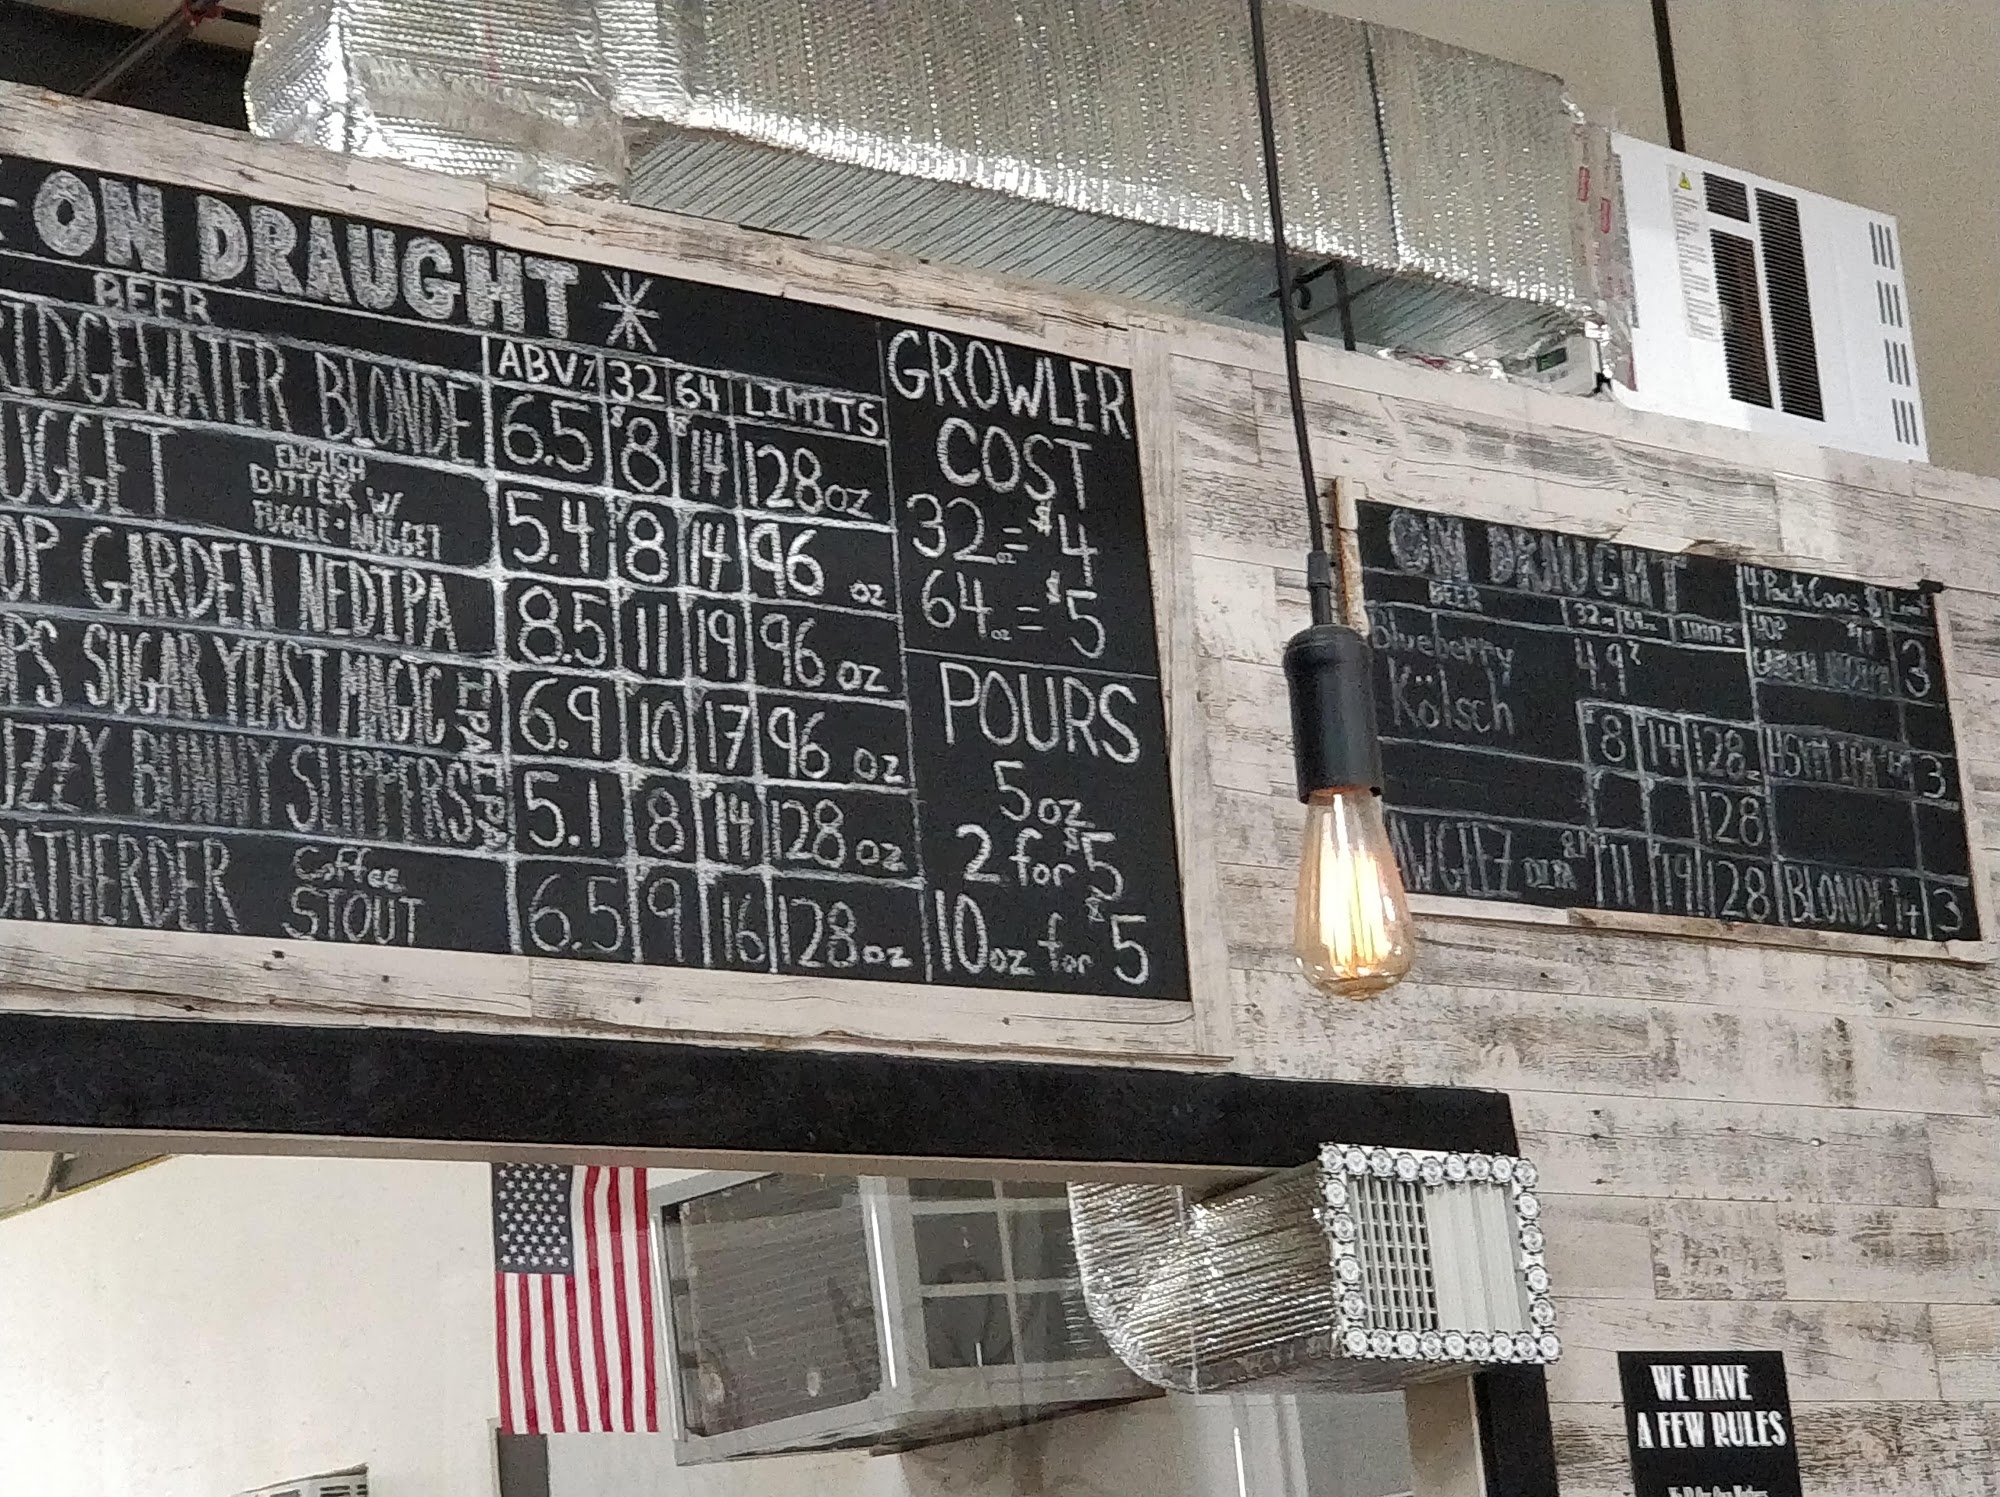 ON DRAUGHT
BEER ABV% 32 64 LIMITS
RIDGEWATER BLONDE 6.5 $8 $14 128oz
UGGET ENGLISH BITTER W/ FUGGLE + NUGGET 5.4 8 14 96 oz
OP GARDEN NEDIPA 8.5 11 19 96 oz
PS SUGAR YEAST MAGIC IPA 6.9 10 17 96 oz
UZZY BUNNY SLIPPERS 5.1 8 14 128 oz
OATHERDER Coffee STOUT 6.5 9 16 128oz
GROWLER
COST
32oz = $4
64oz = $5
POURS
5oz
2 for $5
10oz for $5
ON DRAUGHT
BEER 32oz 64oz LIMITS
Blueberry 4.9%
Kölsch
8 14 128
128
DIPA 11 19 128
4 Pack Cans $ Limit
HOP
GARDEN NEDIPA 3
3
BLONDE 14 3
WE HAVE
A FEW RULES